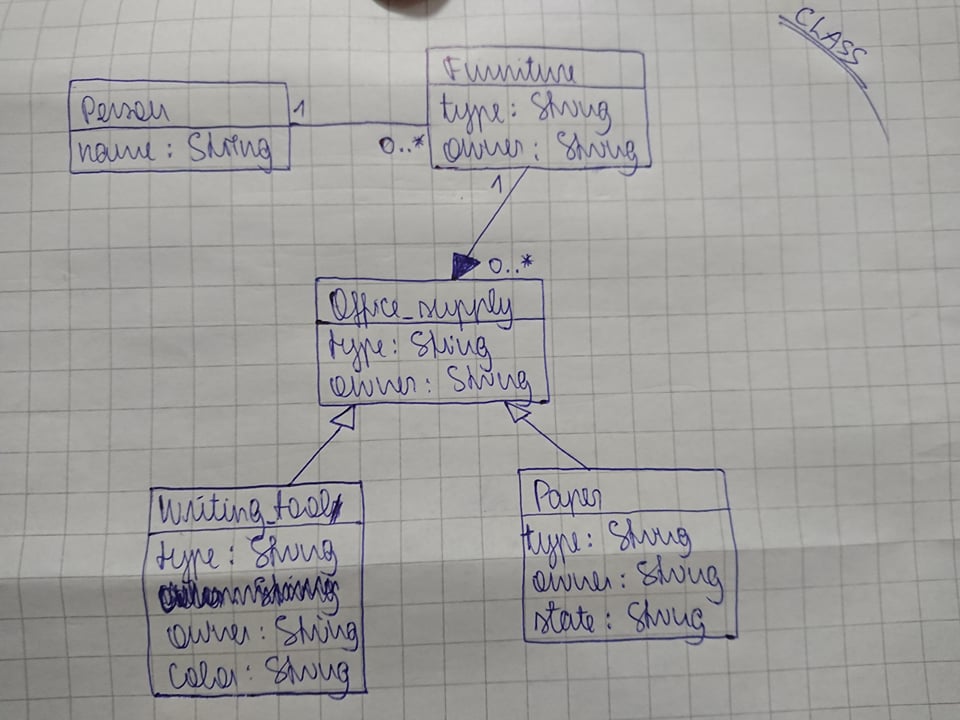 CLASS
Person
name: String
1
0..*
Furniture
type: String
owner: String
1
0..*
Office_supply
type: String
owner: String
Writing_tool
type: String
owner: String
color: String
Paper
type: String
owner: String
state: String